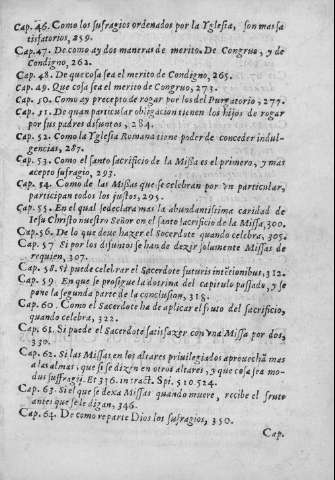 Cap. 46. Como los sufragios ordenados por la Yglesia, son mas sa
tisfatorios, 259.
Cap. 47. De como ay dos maneras de merito. De Congruo, y de
Condigno, 262.
Cap. 48. De que cosa sea el merito de Condigno, 265.
Cap. 49. Que cosa sea el merito de Congruo, 273.
Cap. 50. Como ay precepto de rogar por los del Purgatorio, 277.
Cap. 51. De quan particular obligacion tienen los hijos de rogar
por sus padres difuntos, 284.
Cap. 52. Como la Yglesia Romana tiene poder de conceder indul-
gencias, 287.
Cap. 53. Como el santo sacrificio de la Missa es el primero, y mas
acepto sufragio, 293.
Cap. 54. Como de las Missas que se celebran por vn particular,
participan todos los justos, 295.
Cap. 55. En el qual se declara mas la abundantissima caridad de
Iesu Christo nuestro Señor en el santo sacrificio de la Missa, 300.
Cap. 56. De lo que deue hazer el Sacerdote quando celebra, 305.
Cap. 57 Si por los difuntos se han de dezir solamente Missas de
requien, 307.
Cap. 58. Si puede celebrar el Sacerdote futuris intētionibus, 312.
Cap. 59. En que se prosigue la dotrina del capitulo passado, y se
pone la segunda parte de la conclusion, 318.
Cap. 60. Como el Sacerdote ha de aplicar el fruto del sacrificio,
quando celebra, 322.
Cap. 61. Si puede el Sacerdote satisfazer con vna Missa por dos,
330.
Cap. 62. Si las Missas en los altares priuilegiados aprouechā mas
a las almas, que si se dizen en otros altares, y que cosa sea mo-
dus suffragij. Et 336. in tract. Spi. 510 524.
Cap. 63. Si el que se dexa Missas quando muere, recibe el fruto
antes que se le digan, 346.
Cap. 64. De como reparte Dios los sufragios, 350.
Cap.